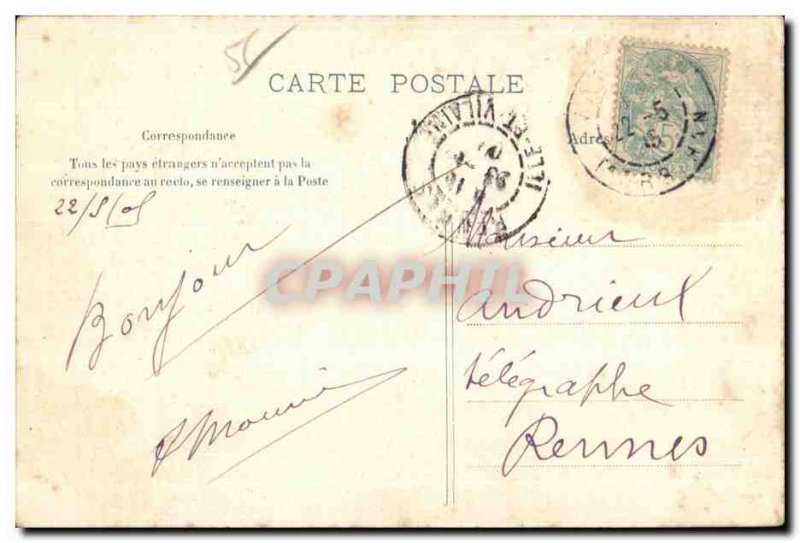 56
CARTE POSTALE
Correspondance
Tous les pays étrangers n'acceptent pas la
correspondance au recto, se renseigner à la Poste
22/5/05
Bonjour
Adres
22 -5
05
ILLE-ET-VILAINE
CPAPHIL
Monsieur
Andrieux
télégraphe
Rennes